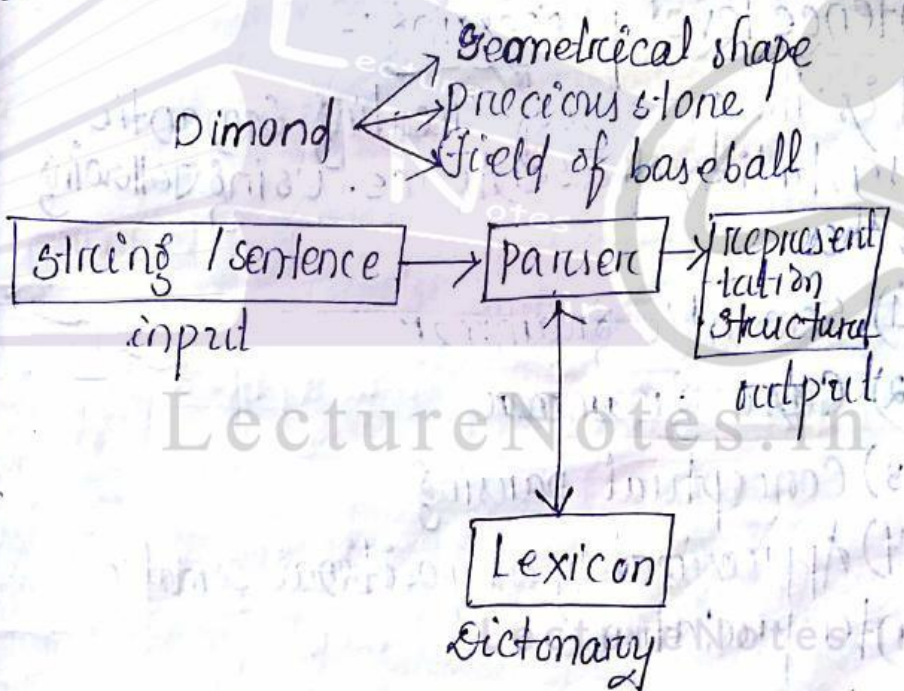 Geometrical shape
Dimond
precious stone
field of baseball
string / sentence
parser
represent
tation
structure
input
output
LectureNotes.in
3) Conceptual parsing
Lexicon
Dictonary